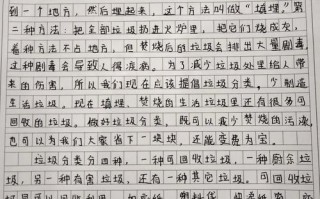 到一个地方，然后埋起来，这个方法叫做“填埋”第
二种方法：把全部垃圾扔进火炉里，把它们烧成灰，
这种方法不占地方，但焚烧后的垃圾会排出大量剧毒，
这种剧毒会导致人得病。为了减少垃圾处里给人带
来的伤害，所以我们现在应该提倡垃圾分类，少制造
生活垃圾。现在填埋、焚烧的生活垃圾里还有很多可
回收的垃圾。做好垃圾分类，既可以减少焚烧的费法，
也可以为我们大家省下一块块，还能变费为宝。
垃圾分类分四种，一种可回收垃圾，一种厨余垃
圾，另一种有害垃圾，还有一种其它垃圾。可回收垃